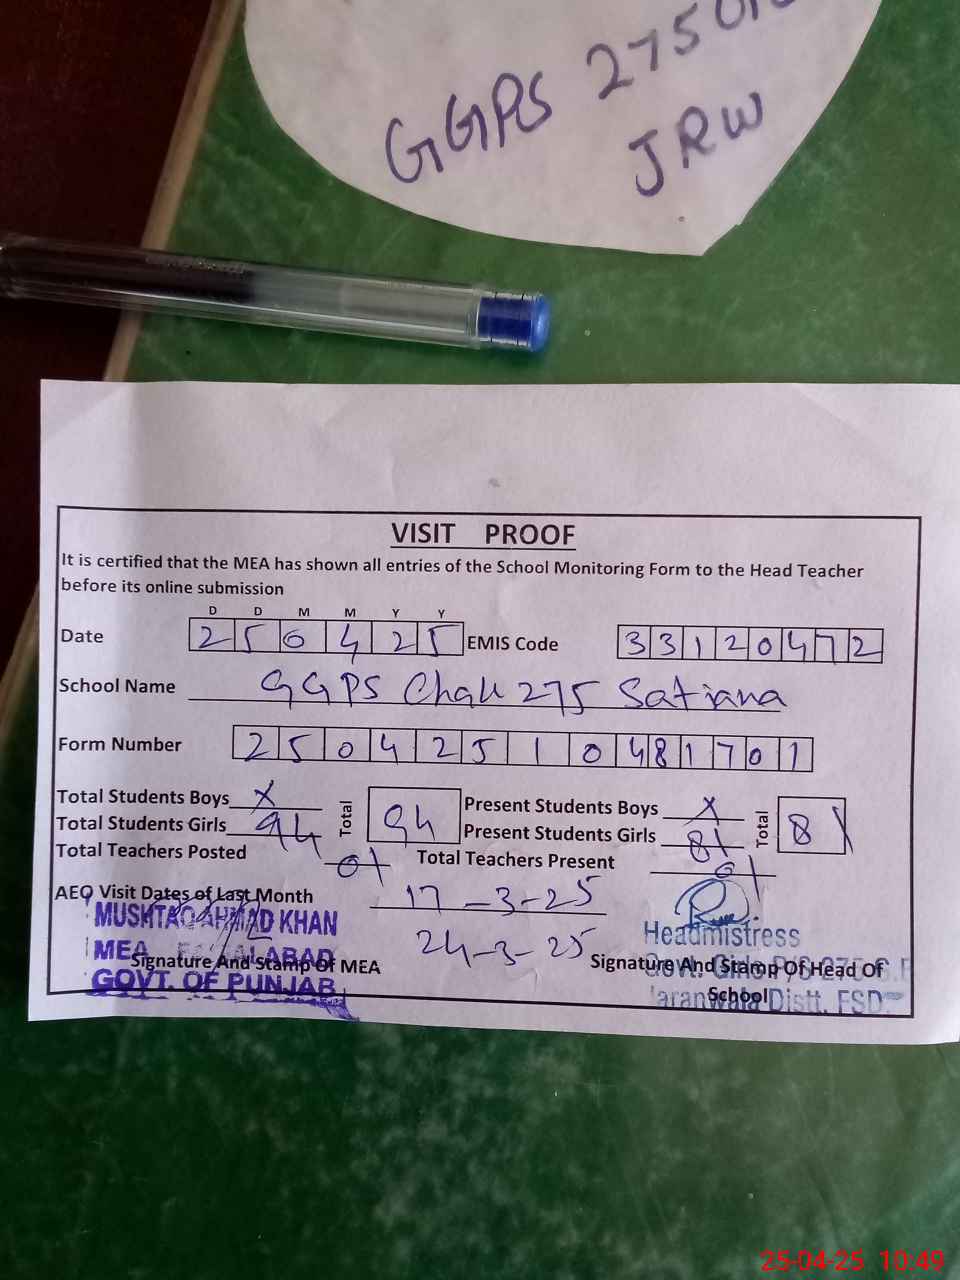 GGPS 275
JRW
VISIT PROOF
It is certified that the MEA has shown all entries of the School Monitoring Form to the Head Teacher
before its online submission
D D M M Y Y
Date 2 5 0 4 2 5 EMIS Code 3 3 1 2 0 4 7 2
School Name GGPS Chak 275 Satiana
Form Number 2 5 0 4 2 5 1 0 4 8 1 7 0 1
Total Students Boys X Total 94 Present Students Boys X Total 81
Total Students Girls 94 Present Students Girls 81
Total Teachers Posted 01 Total Teachers Present 01
AEO Visit Dates of Last Month 17-3-25
24-3-25
MUSHTAQ AHMAD KHAN
MEA FAISALABAD
GOVT. OF PUNJAB
Signature And Stamp Of MEA
Headmistress
Govt. Girls P/S 275
Jaranwala Distt. FSD.
Signature And Stamp Of Head Of
School
25-04-25 10:49